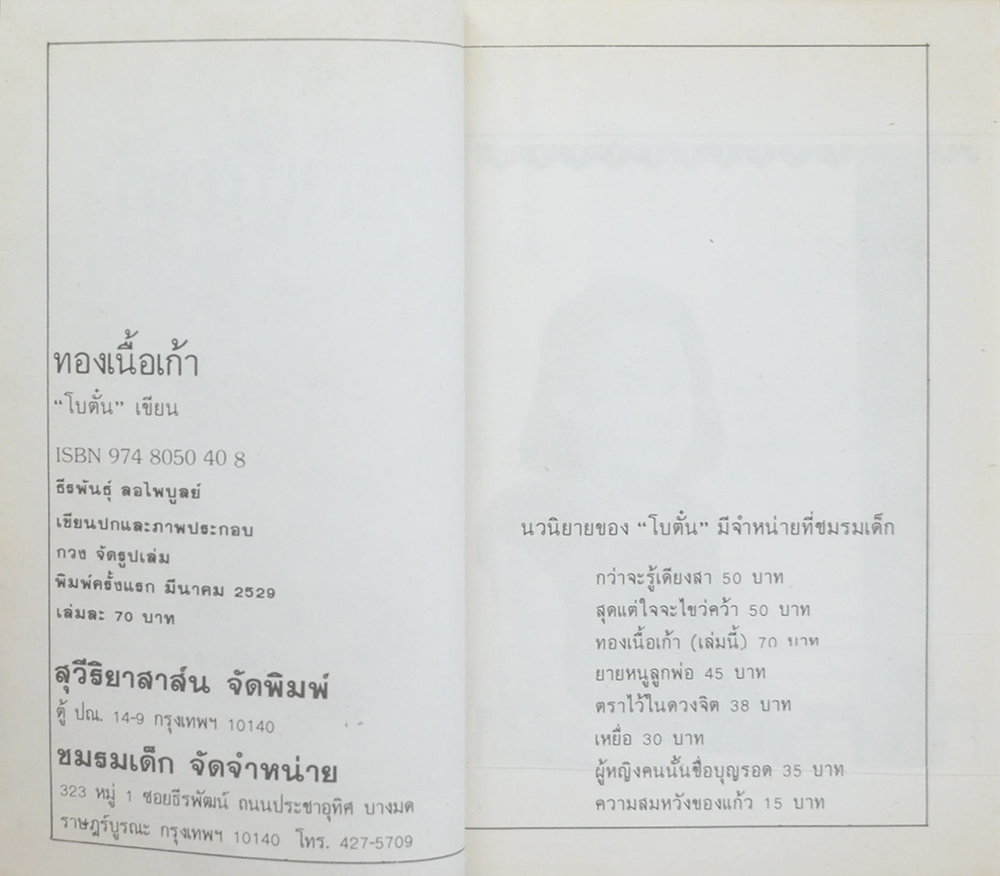 ทองเนื้อเก้า
“โบตั๋น” เขียน
ISBN 974 8050 40 8
ธีรพันธุ์ ลอไพบูลย์
เขียนปกและภาพประกอบ
กวง จัดรูปเล่ม
พิมพ์ครั้งแรก มีนาคม 2529
เล่มละ 70 บาท
สุวีริยาสาส์น จัดพิมพ์
ตู้ ปณ. 14-9 กรุงเทพฯ 10140
ชมรมเด็ก จัดจำหน่าย
323 หมู่ 1 ซอยธีรพัฒน์ ถนนประชาอุทิศ บางมด
ราษฎร์บูรณะ กรุงเทพฯ 10140 โทร. 427-5709
นวนิยายของ “โบตั๋น” มีจำหน่ายที่ชมรมเด็ก
กว่าจะรู้เดียงสา 50 บาท
สุดแต่ใจจะไขว่คว้า 50 บาท
ทองเนื้อเก้า (เล่มนี้) 70 บาท
ยายหนูลูกพ่อ 45 บาท
ตราไว้ในดวงจิต 38 บาท
เหยื่อ 30 บาท
ผู้หญิงคนนั้นชื่อบุญรอด 35 บาท
ความสมหวังของแก้ว 15 บาท